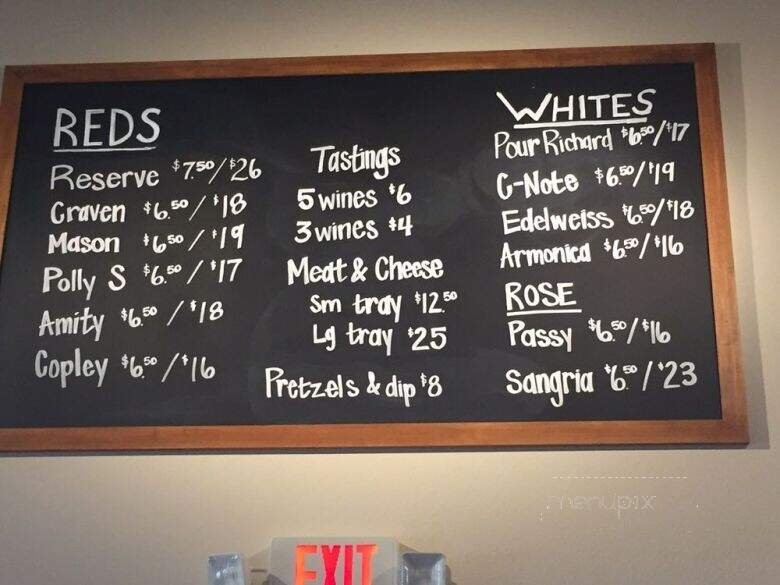 REDS
Reserve $7.50/$26
Craven $6.50/$18
Mason $6.50/$19
Polly S $6.50/$17
Amity $6.50/$18
Copley $6.50/$16
Tastings
5 wines $6
3 wines $4
Meat & Cheese
Sm tray $12.50
Lg tray $25
Pretzels & dip $8
WHITES
Pour Richard $6.50/$17
C-Note $6.50/$19
Edelweiss $6.50/$18
Armonica $6.50/$16
ROSE
Passy $6.50/$16
Sangria $6.50/$23
menupix
EXIT